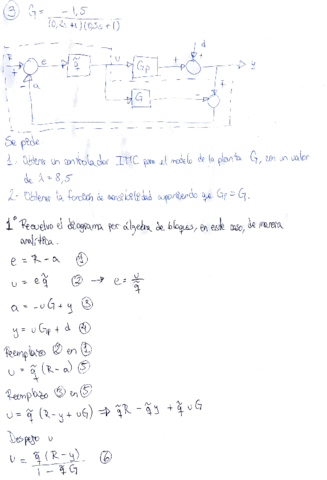 ③ G = -1,5 / (0,2s+1)(0,5s+1)
d
R + e q̃ u Gp + + y
-
a
G - +
Se pide
1- Obtener un controlador IMC para el modelo de la planta G, con un valor
de λ = 8,5
2- Obtener la función de sensibilidad suponiendo que Gp = G.
1º Resuelvo el diagrama por álgebra de bloques, en este caso, de manera
analítica.
e = R - a ①
u = e q̃ ② → e = u/q̃
a = -uG + y ③
y = uGp + d ④
Reemplazo ② en ①
u = q̃ (R - a) ⑤
Reemplazo ③ en ⑤
u = q̃ (R - y + uG) ⇒ q̃R - q̃y + q̃uG
Despejo u
u = q̃ (R - y) / 1 - q̃G ⑥